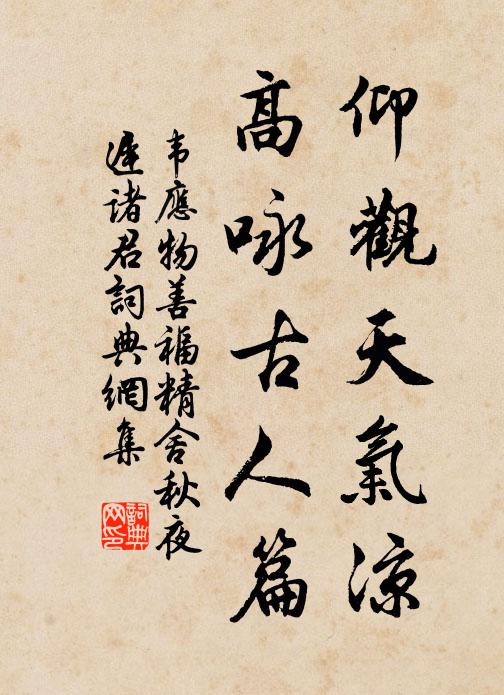 仰觀天氣涼
高咏古人篇
韦應物善福精舍秋夜
遲諸君詞典網集
詞典网印